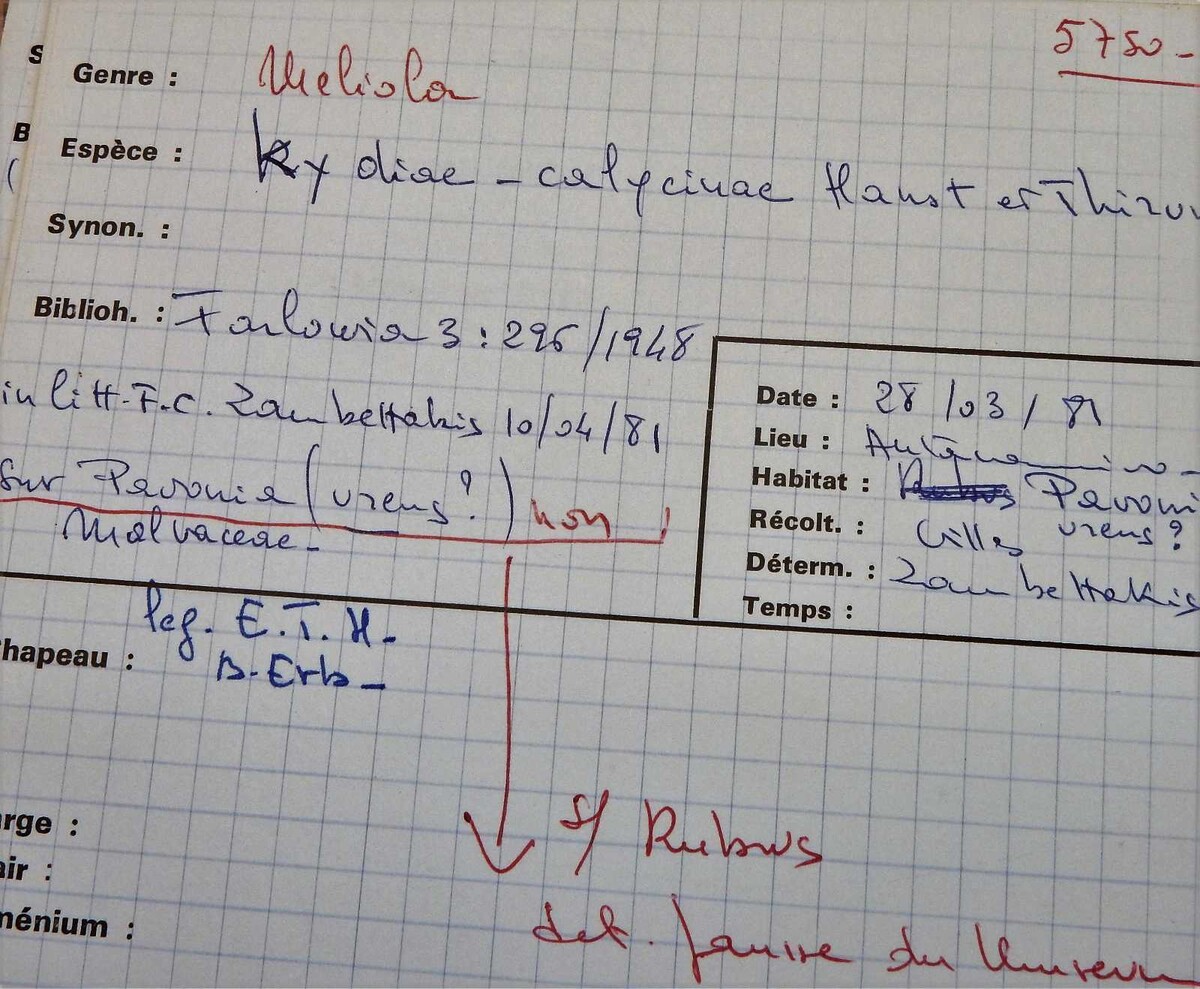 5750-
S
Genre : Meliola
B
Espèce : Kydiae - calycinae Hanst et Thiru
(
Synon. :
Biblioh. : Farlowia 3 : 296/1948
in litt. F.C. Zambettakis 10/04/81
sur Pavonia (urens?) non !
Malvaceae -
Date : 28/03/81
Lieu :
Habitat : Rubus Pavoni
urens?
Récolt. : Gilles
Déterm. : Zambettakis
Temps :
leg. E.T.H -
hapeau : B. Erb -
arge :
air :
ménium :
s/ Rubus
det. du Museum